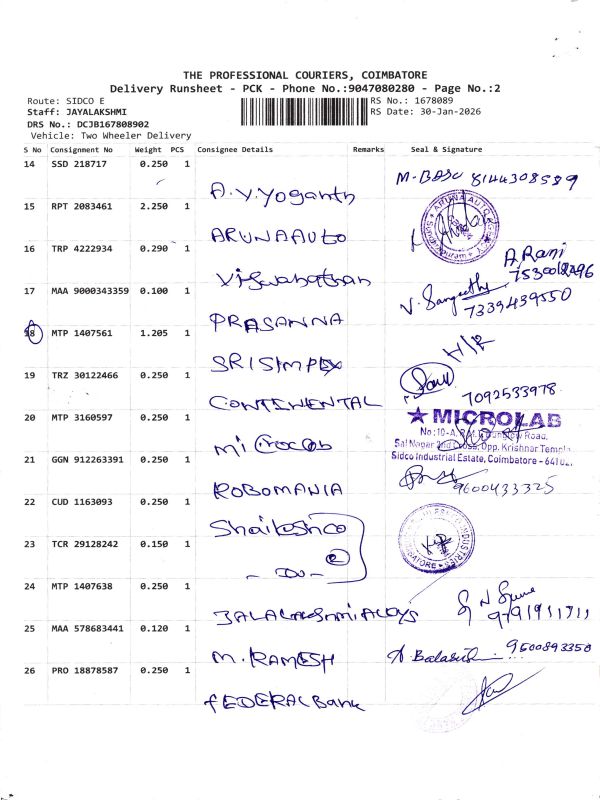 THE PROFESSIONAL COURIERS, COIMBATORE
Delivery Runsheet - PCK - Phone No.:9047080280 - Page No.:2
Route: SIDCO E
RS No.: 1678089
Staff: JAYALAKSHMI
RS Date: 30-Jan-2026
DRS No.: DCJB167808902
Vehicle: Two Wheeler Delivery
S No Consignment No Weight PCS Consignee Details Remarks Seal & Signature
14 SSD 218717 0.250 1
A.V.Yoganth
M-BASU 8144308589
15 RPT 2083461 2.250 1
ARUNA AUTO
16 TRP 4222934 0.290 1
Viswanathan
A.Rani
17 MAA 9000343359 0.100 1
PRASANNA
V. Sangeetha
7339439550
18 MTP 1407561 1.205 1
SRI SIMPEX
19 TRZ 30122466 0.250 1
CONTINENTAL
7092533978
20 MTP 3160597 0.250 1
Microlab
MICROLAB
Sidco Industrial Estate, Coimbatore - 641021.
21 GGN 912263391 0.250 1
ROBOMANIA
9600433325
22 CUD 1163093 0.250 1
Shaileshco
23 TCR 29128242 0.150 1
- Do -
2
24 MTP 1407638 0.250 1
JALALAKSHMI ALOYS
9791911711
25 MAA 578683441 0.120 1
M. RAMESH
9600893350
26 PRO 18878587 0.250 1
FEDERAL Bank